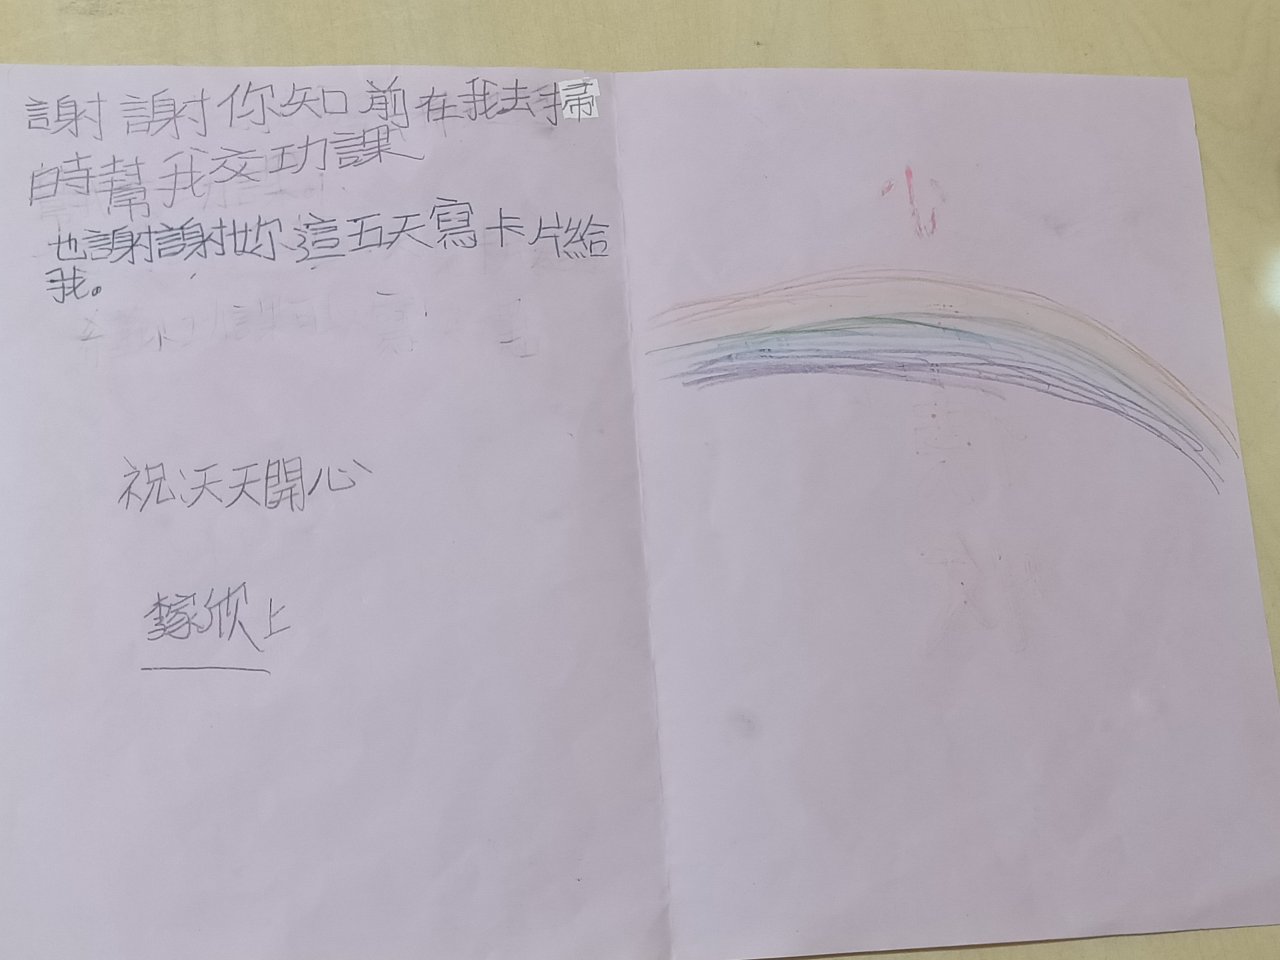 謝謝你知前在我去掃
時幫我交功課
也謝謝妳這五天寫卡片給
我。
祝天天開心
欣上